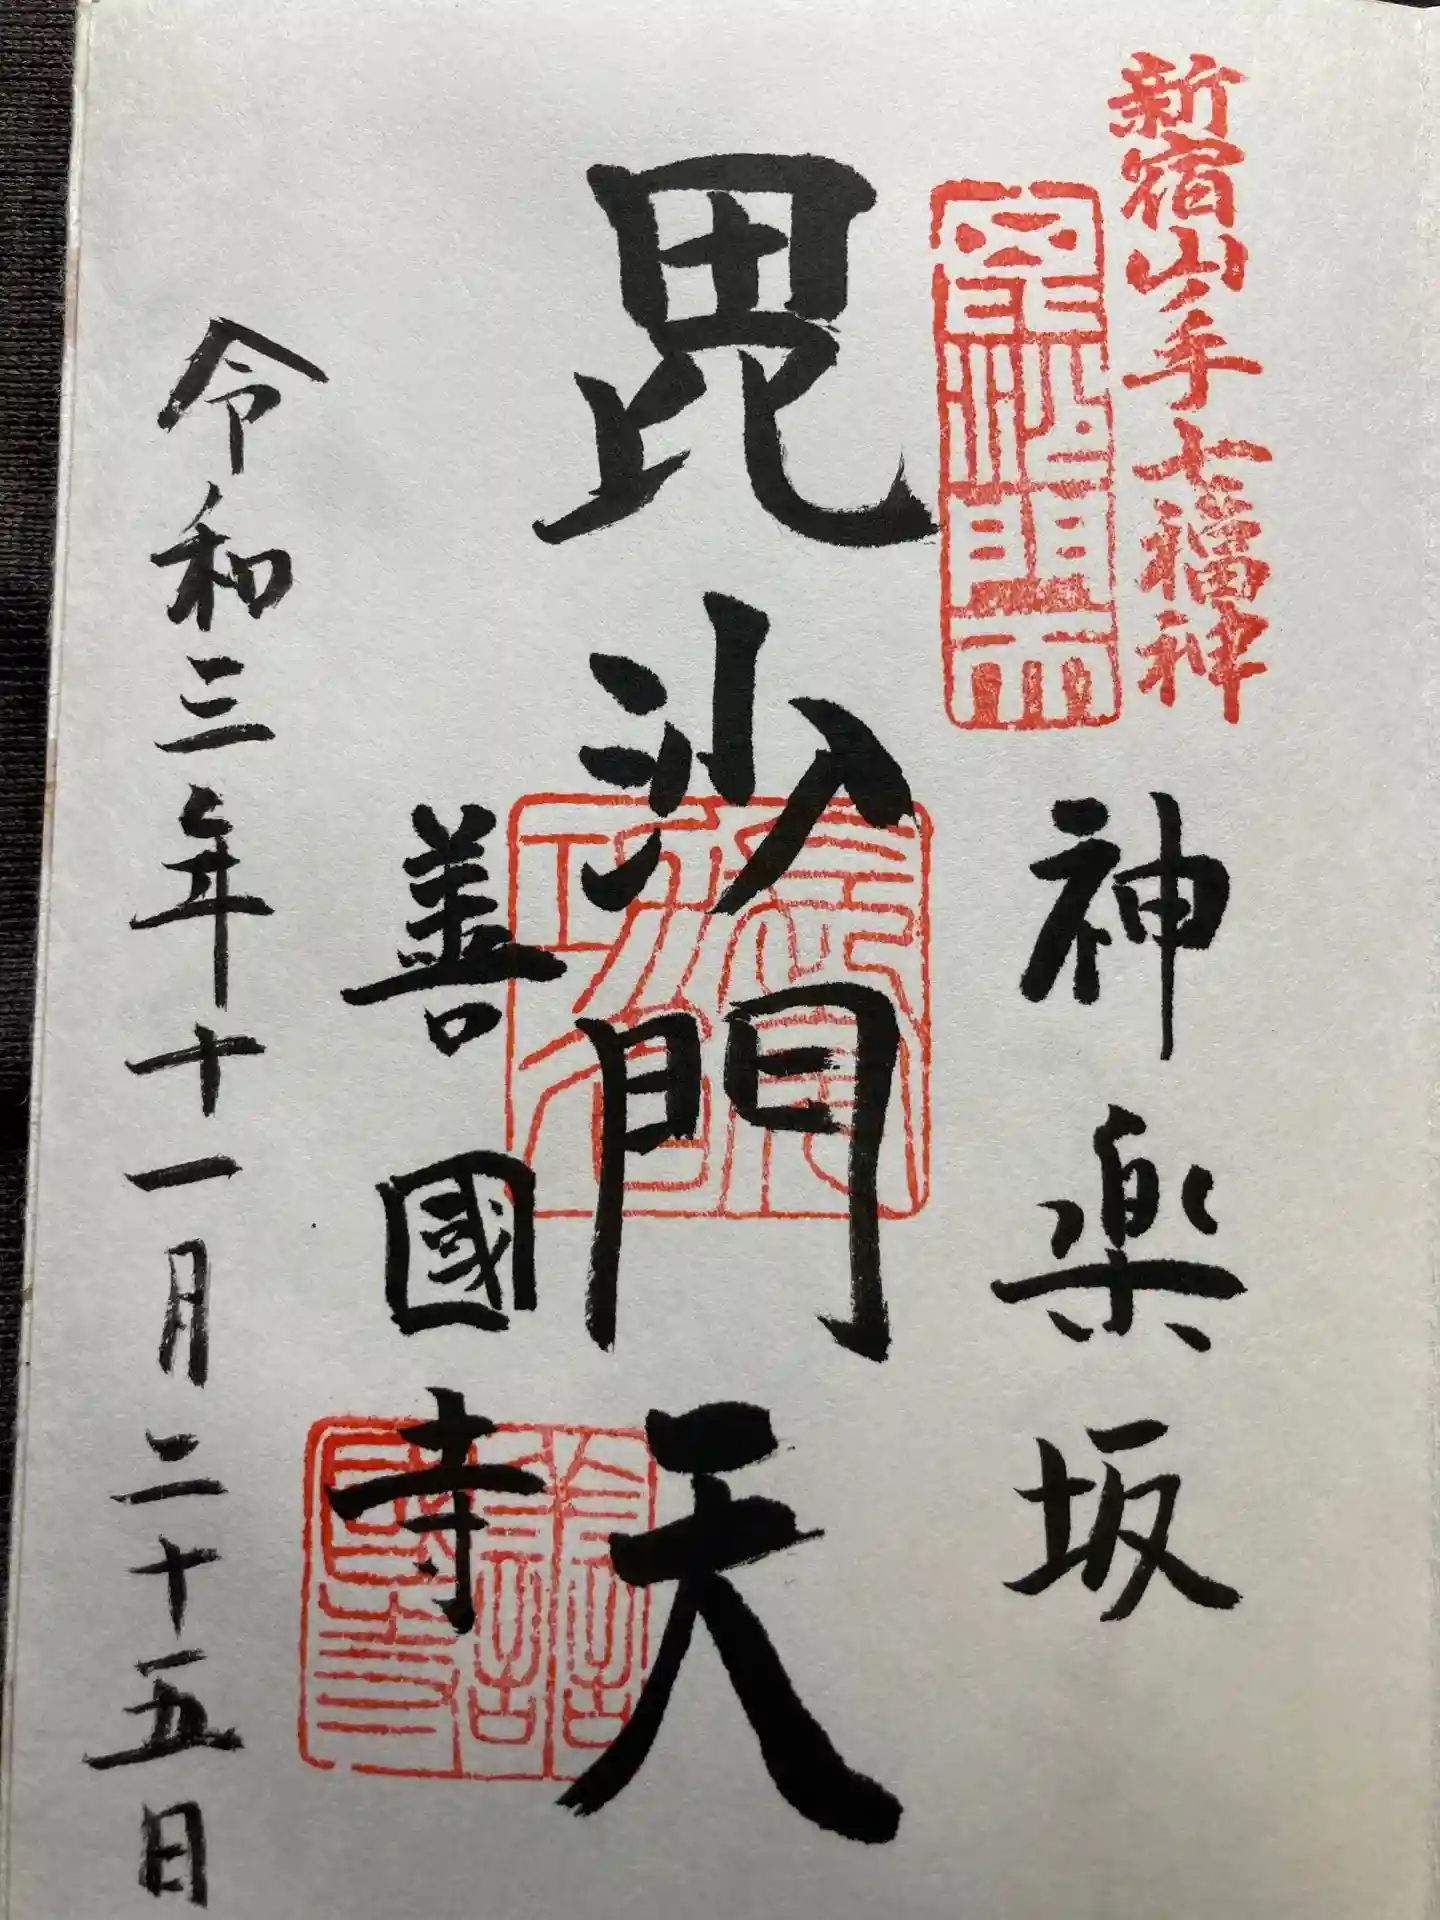 新宿山手七福神
毘沙門天
神楽坂
毘沙門天
善國寺
善國寺
令和三年十一月二十五日